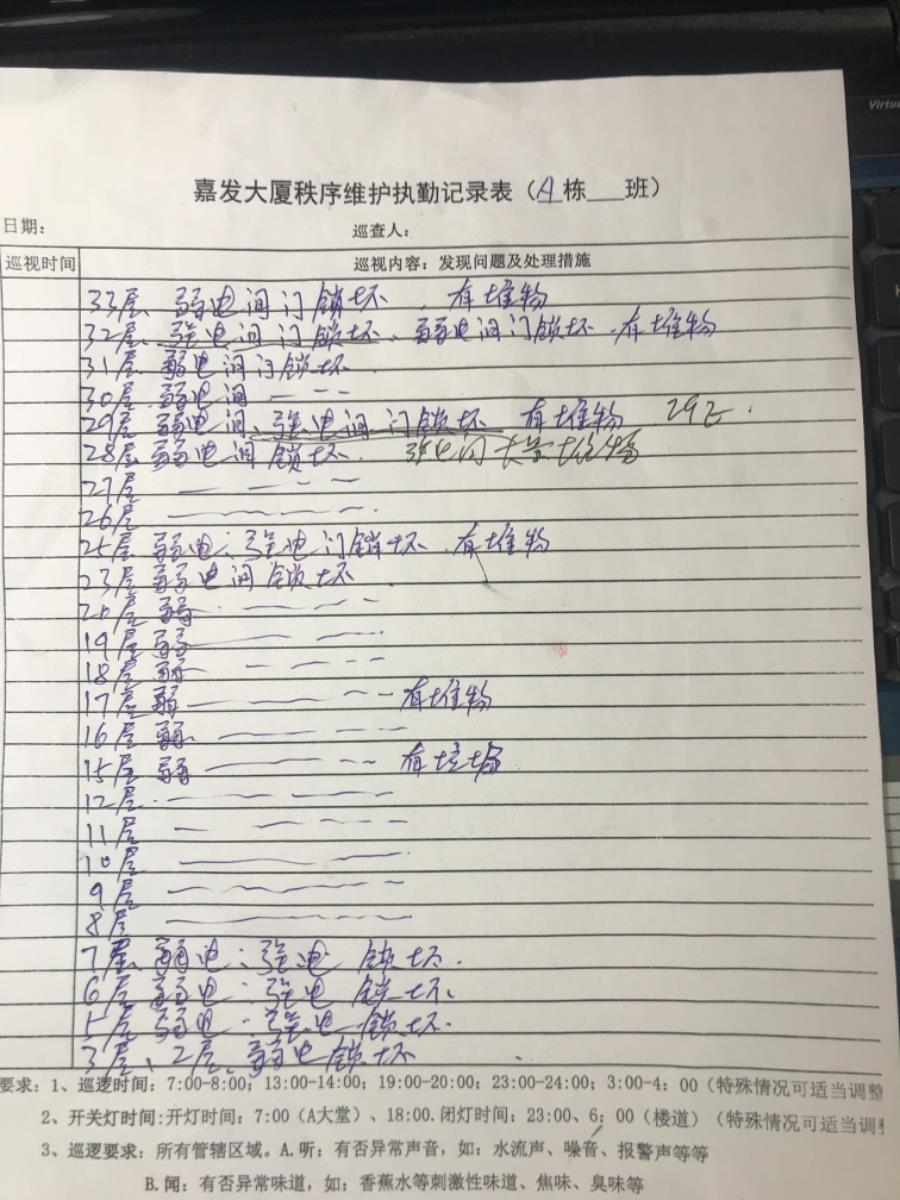 Virtu
嘉发大厦秩序维护执勤记录表（A栋___班）
日期： 巡查人：
巡视时间 巡视内容：发现问题及处理措施
33层、弱电间门锁坏、有堆物
32层、强电间门锁坏、弱电间门锁坏、有堆物
31层、弱电间门锁坏
30层、弱电间 — — — —
29层、弱电间、强电间门锁坏 有堆物 29
28层 弱电间锁坏. 强电间
27层 — — — —
26层 — — — —
25层 弱电、强电门锁坏、有堆物
23层 弱电间锁坏
20层 弱 — — — —
19层 弱 — — — —
18层 弱 — — — —
17层 弱 — — — — 有堆物
16层 弱 — — — —
15层 弱 — — — — 有
12层 — — — —
11层 — — — —
10层 — — — —
9层 — — — —
8层 — — — —
7层、弱电、强电 锁坏.
6层 弱电、强电 锁坏、
5层 弱电、强电 锁坏.
3层、2层、弱电锁坏
要求：1、巡逻时间：7:00-8:00；13:00-14:00；19:00-20:00；23:00-24:00；3:00-4：00（特殊情况可适当调整
2、开关灯时间:开灯时间：7:00（A大堂）、18:00.闭灯时间：23:00、6：00（楼道）（特殊情况可适当调
3、巡逻要求：所有管辖区域。A.听：有否异常声音，如：水流声、噪音、报警声等等
B.闻：有否异常味道，如：香蕉水等刺激性味道、焦味、臭味等